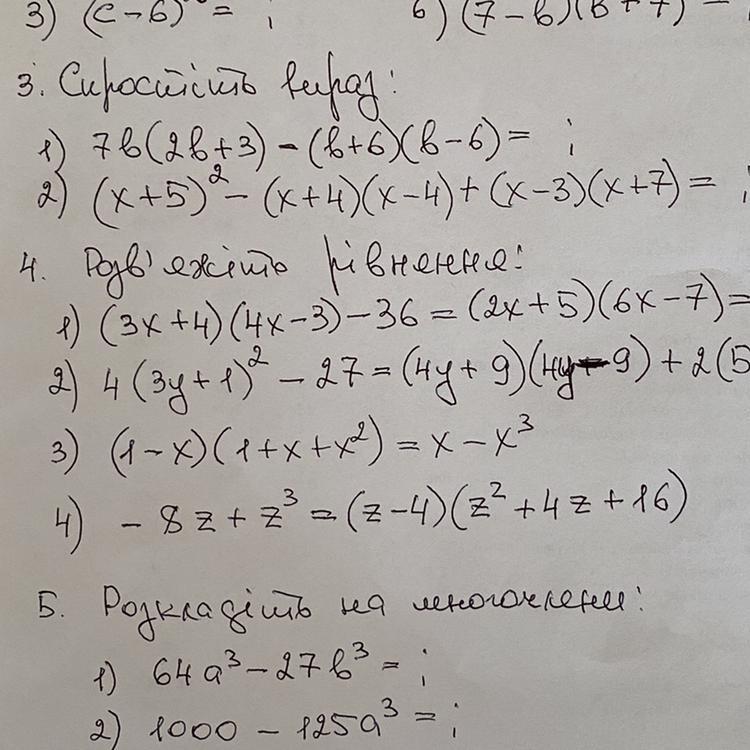 3) (c-6) = ; 6) (7-b)(b+7) =
3. Спростіть вираз:
1) 7b(2b+3) - (b+6)(b-6) = ;
2) (x+5)² - (x+4)(x-4) + (x-3)(x+7) = ;
4. Розв'яжіть рівнення:
1) (3x+4)(4x-3) - 36 = (2x+5)(6x-7) =
2) 4(3y+1)² - 27 = (4y+9)(4y-9) + 2(5
3) (1-x)(1+x+x²) = x - x³
4) - 8z + z³ = (z-4)(z² + 4z + 16)
5. Розкладіть на многочлени:
1) 64a³ - 27b³ = ;
2) 1000 - 125a³ = ;